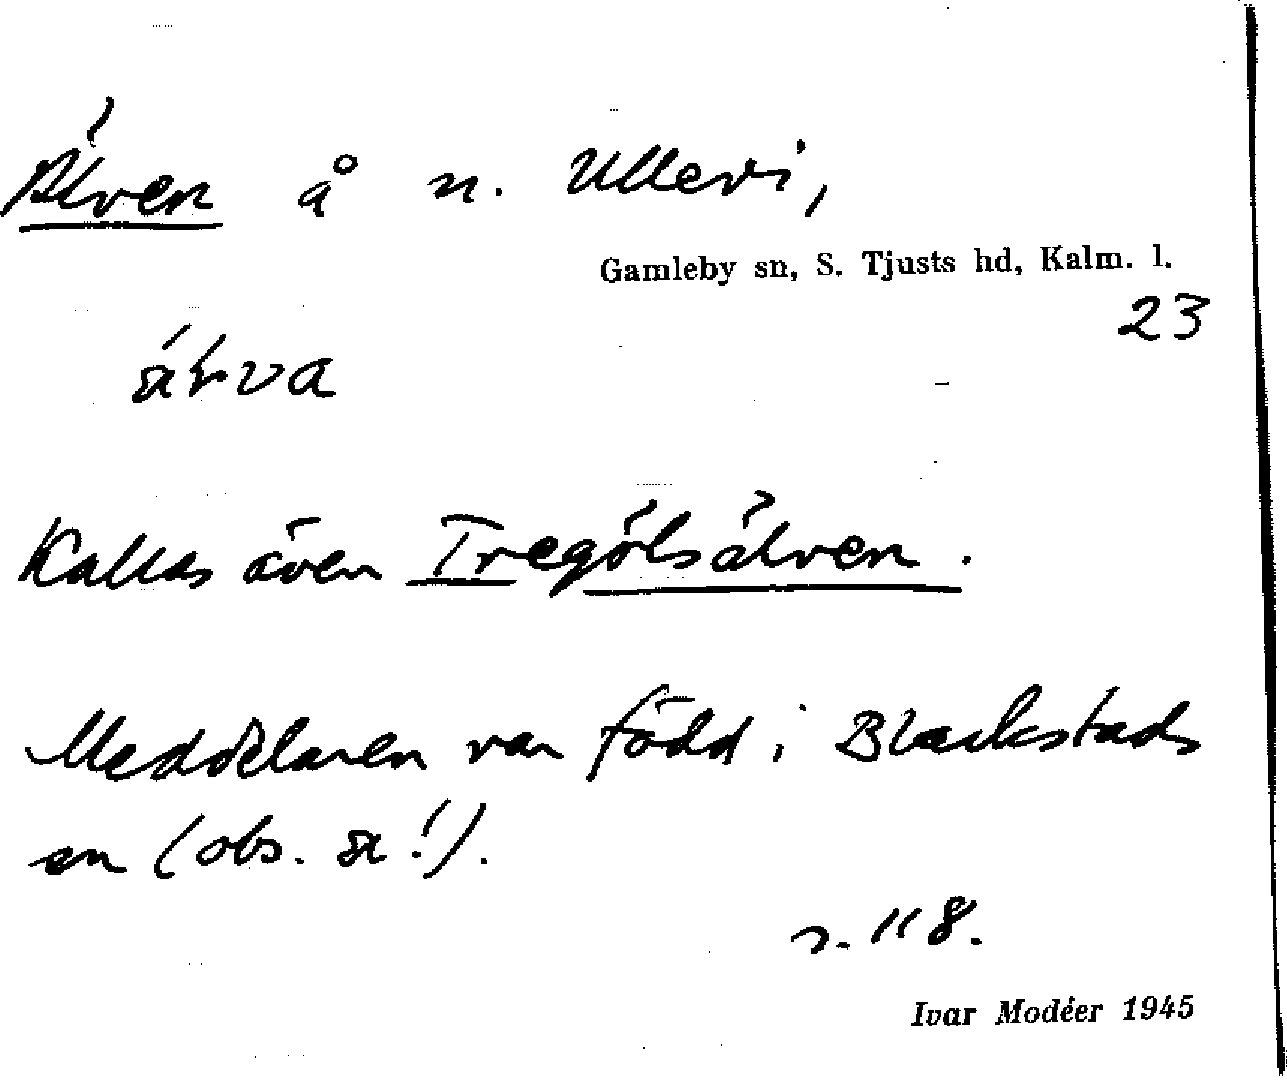 Älven å n. Ullevi,
Gamleby sn, S. Tjusts hd, Kalm. l.
23
Kallas även Tregölsälven.
Meddelaren var född i Blackstads
sn (obs. æ!).
s. 118.
Ivar Modéer 1945